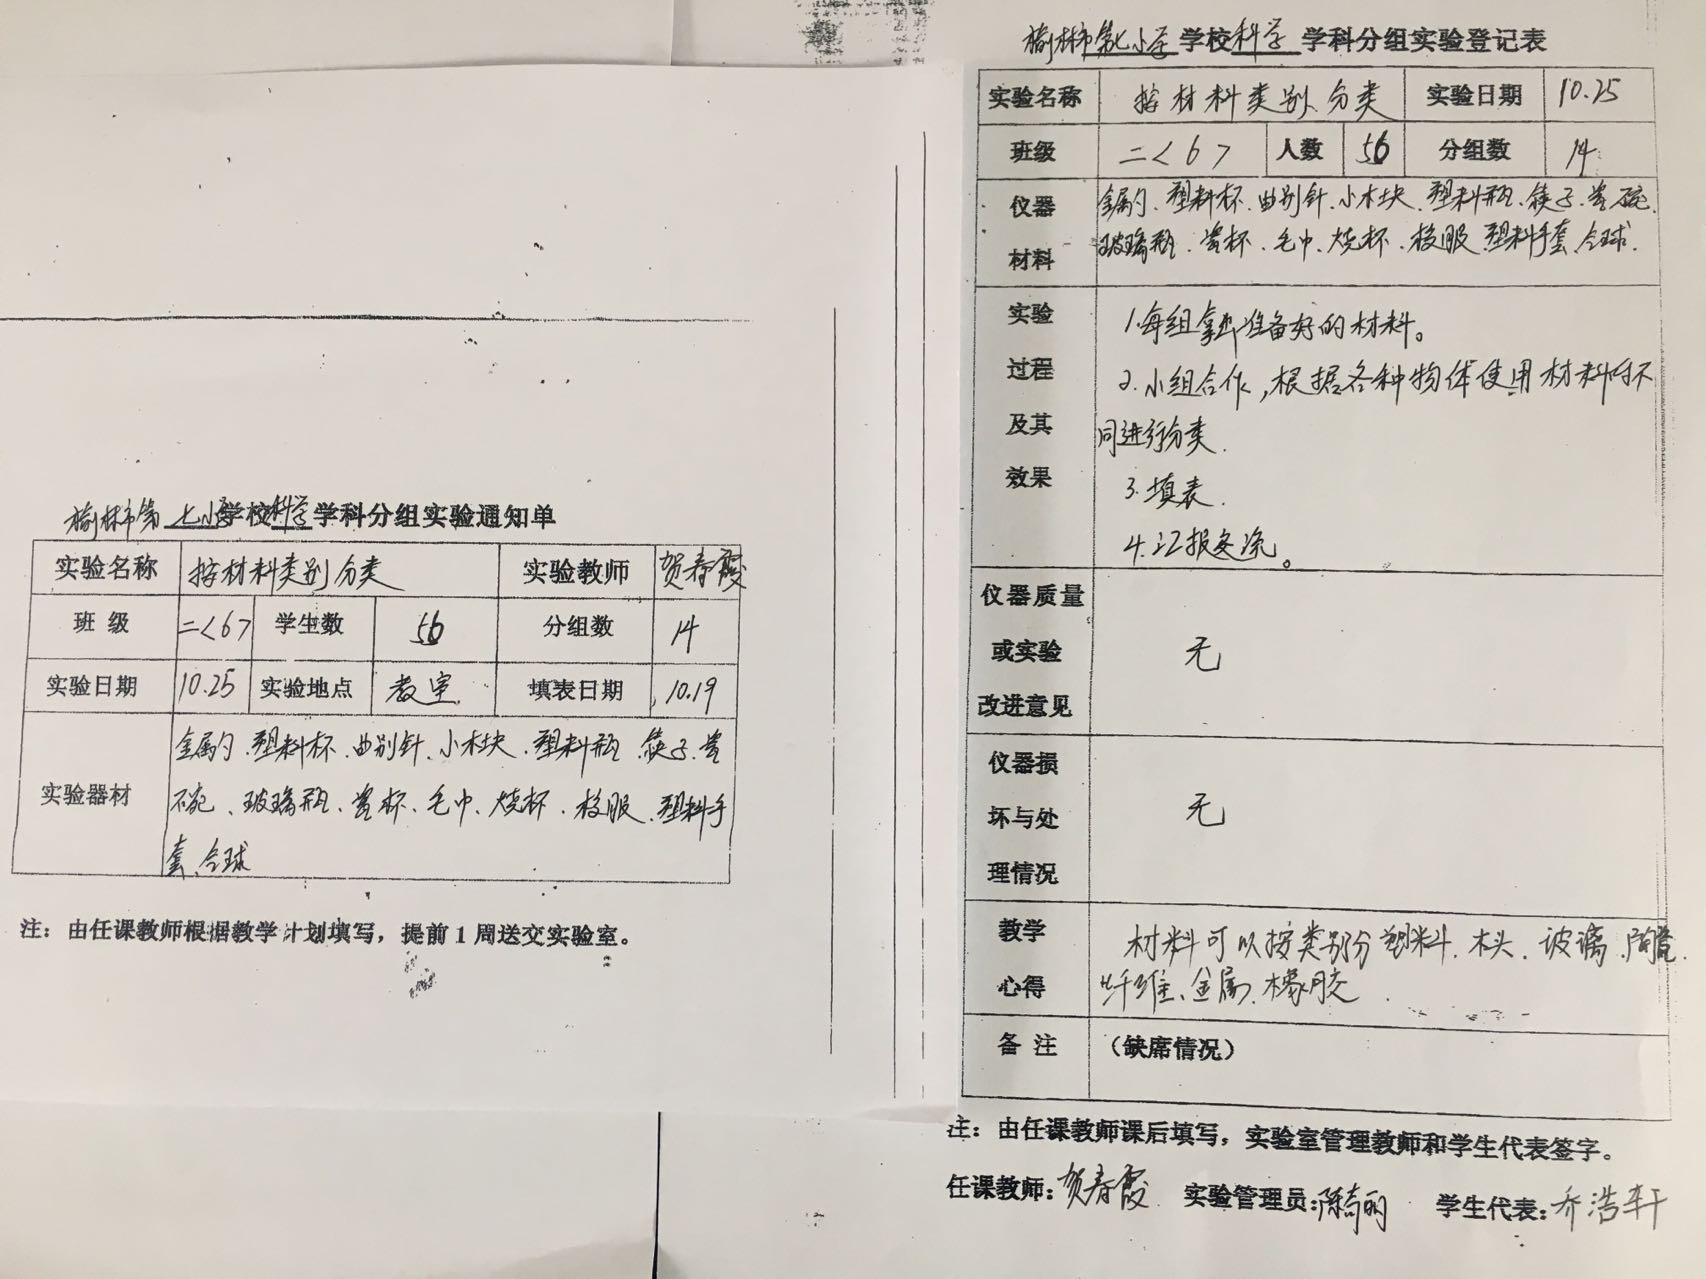 榆林市第七小学学校科学学科分组实验通知单
实验名称 按材料类别分类 实验教师 贺春霞
班级 二<6> 学生数 56 分组数 14
实验日期 10.25 实验地点 教室 填表日期 10.19
实验器材
金属勺、塑料杯、曲别针、小木块、塑料瓶、筷子、瓷
碗、玻璃瓶、瓷杯、毛巾、烧杯、校服、塑料手
套、
注：由任课教师根据教学计划填写，提前1周送交实验室。
榆林市第七小学学校科学学科分组实验登记表
实验名称 按材料类别分类 实验日期 10.25
班级 二<6> 人数 56 分组数 14
仪器
材料
金属勺、塑料杯、曲别针、小木块、塑料瓶、筷子、瓷碗、
玻璃瓶、瓷杯、毛巾、烧杯、校服、塑料手套、
实验
过程
及其
效果
1.每组拿出准备好的材料。
2.小组合作，根据各种物体使用材料的不
同进行分类.
3.填表.
4.汇报交流。
仪器质量
或实验
改进意见
无
仪器损
坏与处
理情况
无
教学
心得
材料可以按类别分塑料、木头、玻璃、陶瓷、
纤维、金属、橡胶.
备注 （缺席情况）
注：由任课教师课后填写，实验室管理教师和学生代表签字。
任课教师：贺春霞 实验管理员：陈奇丽 学生代表：乔浩轩